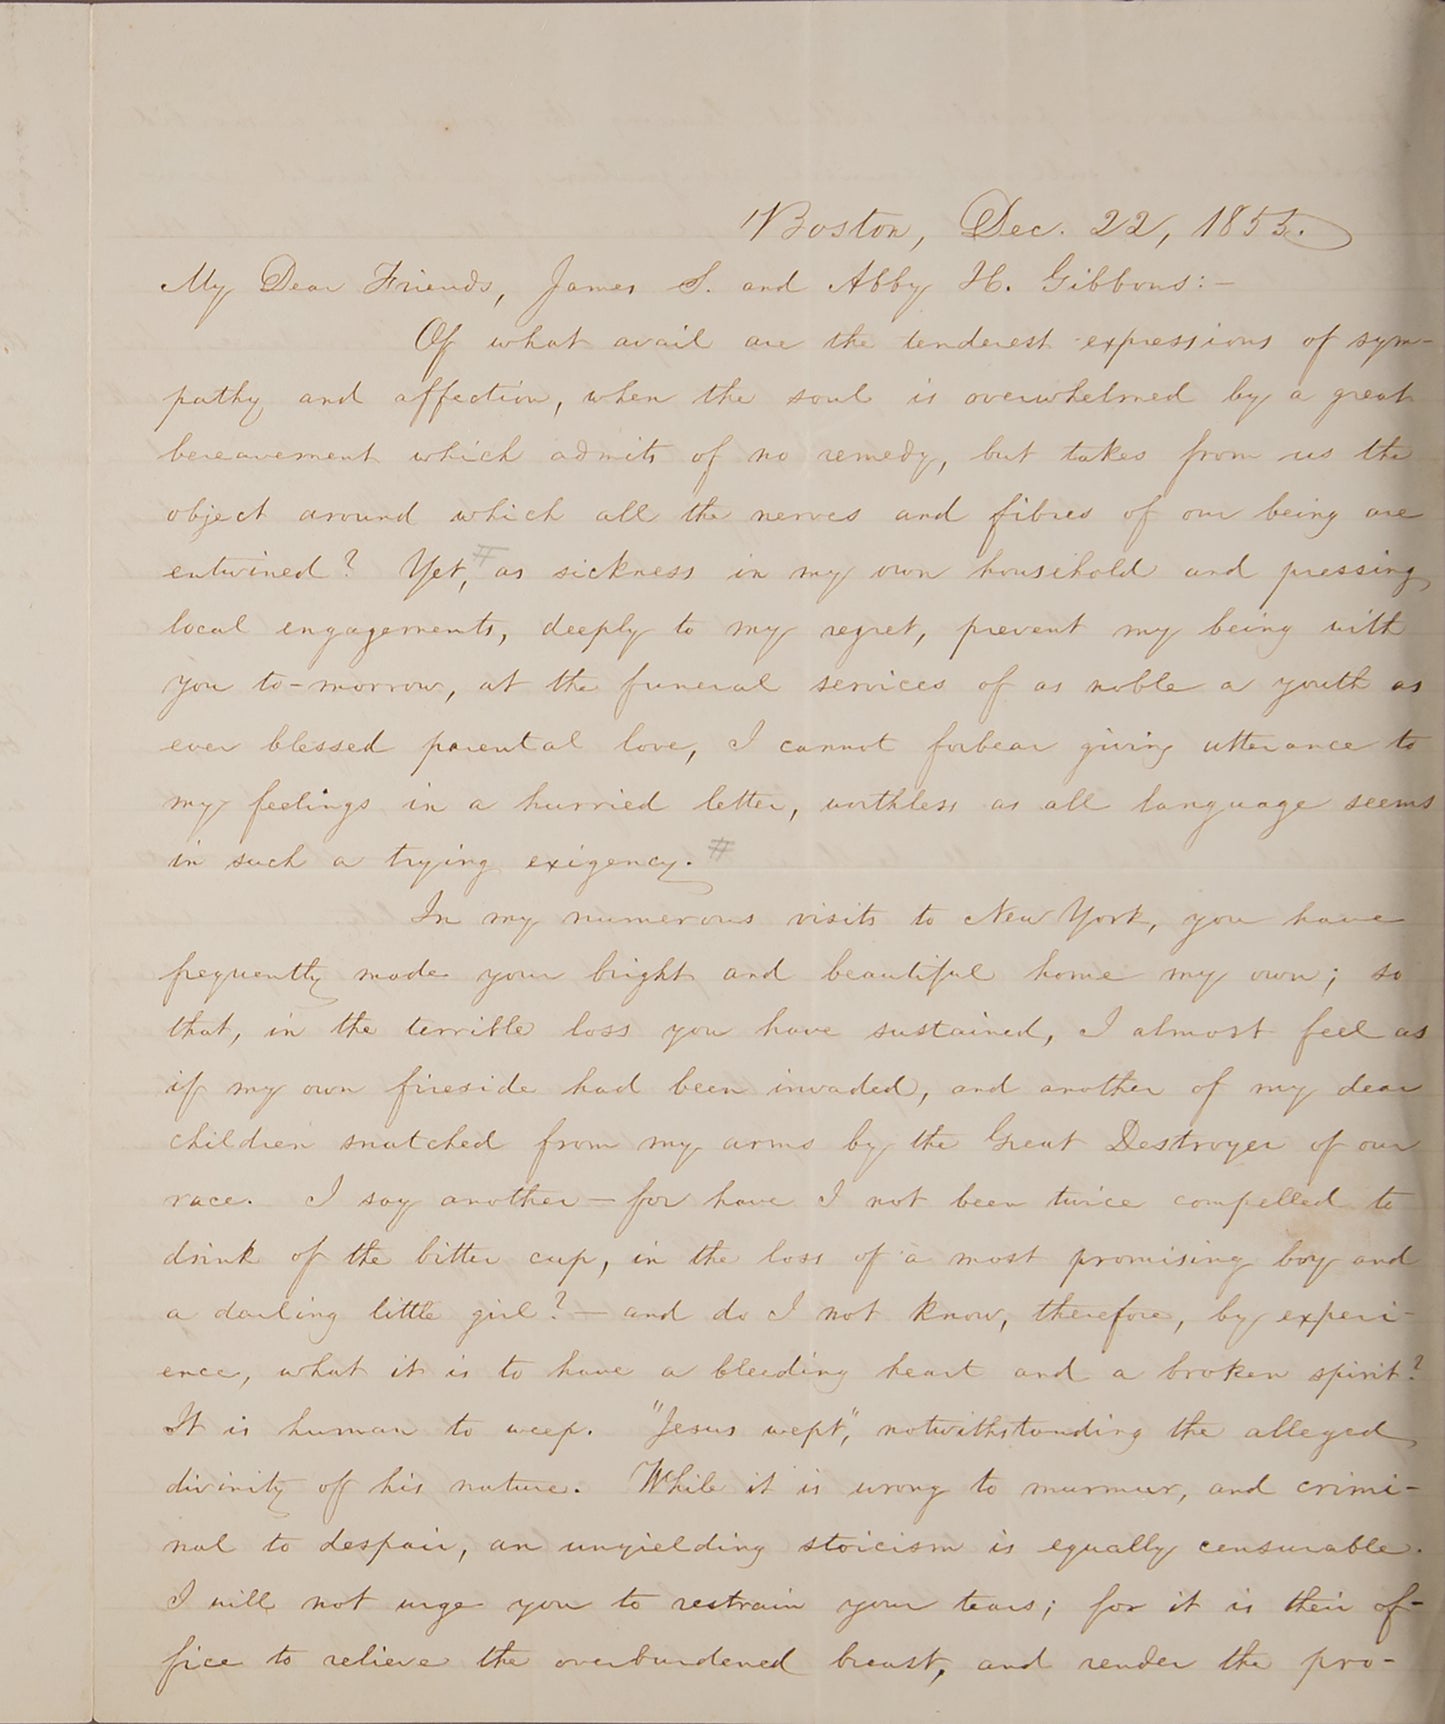 Boston, Dec. 22, 1855.
My Dear Friends, James S. and Abby H. Gibbons:—
Of what avail are the tenderest expressions of sym-
pathy and affection, when the soul is overwhelmed by a great
bereavement which admits of no remedy, but takes from us the
object around which all the nerves and fibres of our being are
entwined? Yet, # as sickness in my own household and pressing
local engagements, deeply to my regret, prevent my being with
you to-morrow, at the funeral services of as noble a youth as
ever blessed parental love, I cannot forbear giving utterance to
my feelings in a hurried letter, worthless as all language seems
in such a trying exigency. #
In my numerous visits to New York, you have
frequently made your bright and beautiful home my own; so
that, in the terrible loss you have sustained, I almost feel as
if my own fireside had been invaded, and another of my dear
children snatched from my arms by the Great Destroyer of our
race. I say another—for have I not been twice compelled to
drink of the bitter cup, in the loss of a most promising boy and
a darling little girl?—and do I not know, therefore, by experi-
ence, what it is to have a bleeding heart and a broken spirit?
It is human to weep. "Jesus wept," notwithstanding the alleged
divinity of his nature. While it is wrong to murmur, and crimi-
nal to despair, an unyielding stoicism is equally censurable.
I will not urge you to restrain your tears; for it is their of-
fice to relieve the overburdened breast, and render the pro-